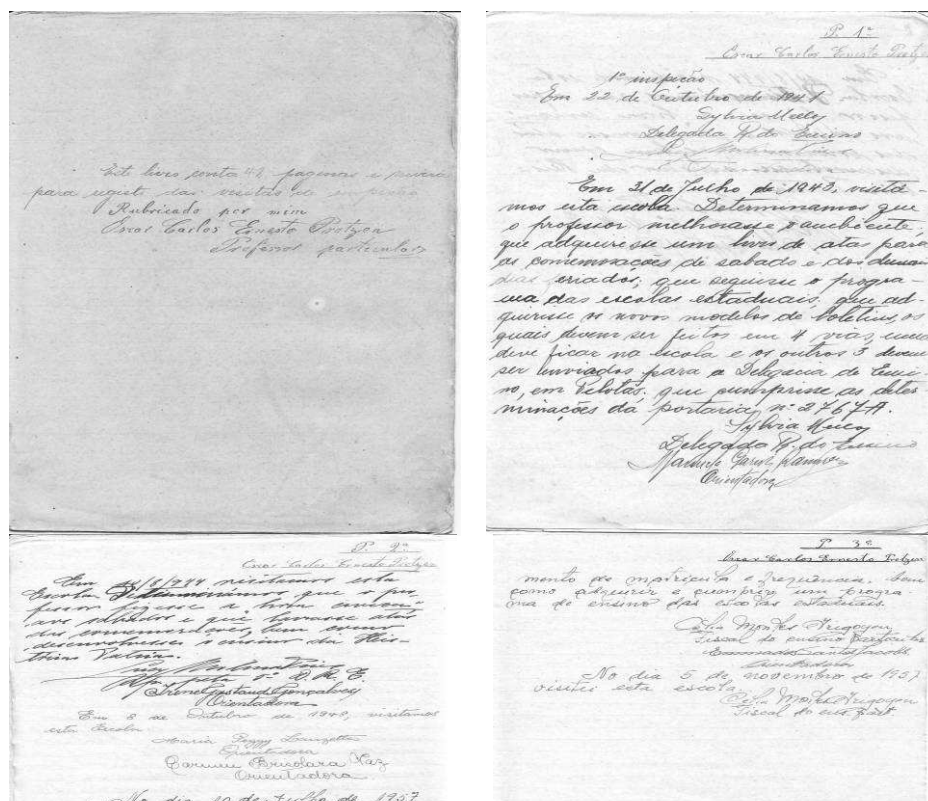 Este livro conta 42 paginas e servirá
para registo das visitas de
Rubricado por mim
Oscar Carlos Ernesto
Professor particular
P. 1ª
Oscar Carlos Ernesto
1ª inspeção
Em 22 de Outubro de 1941
Sylvia
Delegada R. do Ensino
Em 21 de Julho de 1943, visita-
mos esta escola. Determinamos que
o professor melhorasse o ambiente,
que adquirisse um livro de atas para
as comemorações de sabado e dos demais
dias criados; que seguisse o progra-
ma das escolas estaduais, que ad-
quirisse os novos modelos de boletins, os
quais devem ser feitos em 4 vias, uma
deve ficar na escola e os outros 3 devem
ser enviados para a Delegacia de Ensi-
no, em Pelotas. que cumprisse as deter-
minações da portaria nº 2767A.
Sylvia
Delegada R. do Ensino
Orientadora
P. 2ª
Oscar Carlos Ernesto
Em /8/944 visitamos esta
Escola. que o pro-
fessor fizesse a hora
aos sábados e que lavrasse atas
das comemorações, bem como
desenvolvesse o ensino da His-
tória Pátria.
Irene Gonçalves
Orientadora
Em 8 de Outubro de 1948, visitamos
esta Escola.
Maria Peggy
Orientadora
Carmen Brisolara Vaz
Orientadora
No dia 10 de Julho de 1957
P 3ª
Oscar Carlos Ernesto
mento de matricula e frequência, bem
como adquirir e cumprir um progra-
ma de ensino das escolas estaduais.
Célia Montes Arigoyen
Fiscal do ensino particular
Orientadora
No dia 5 de novembro de 1957
visitei esta escola.
Célia Montes Arigoyen
Fiscal do ens. part.